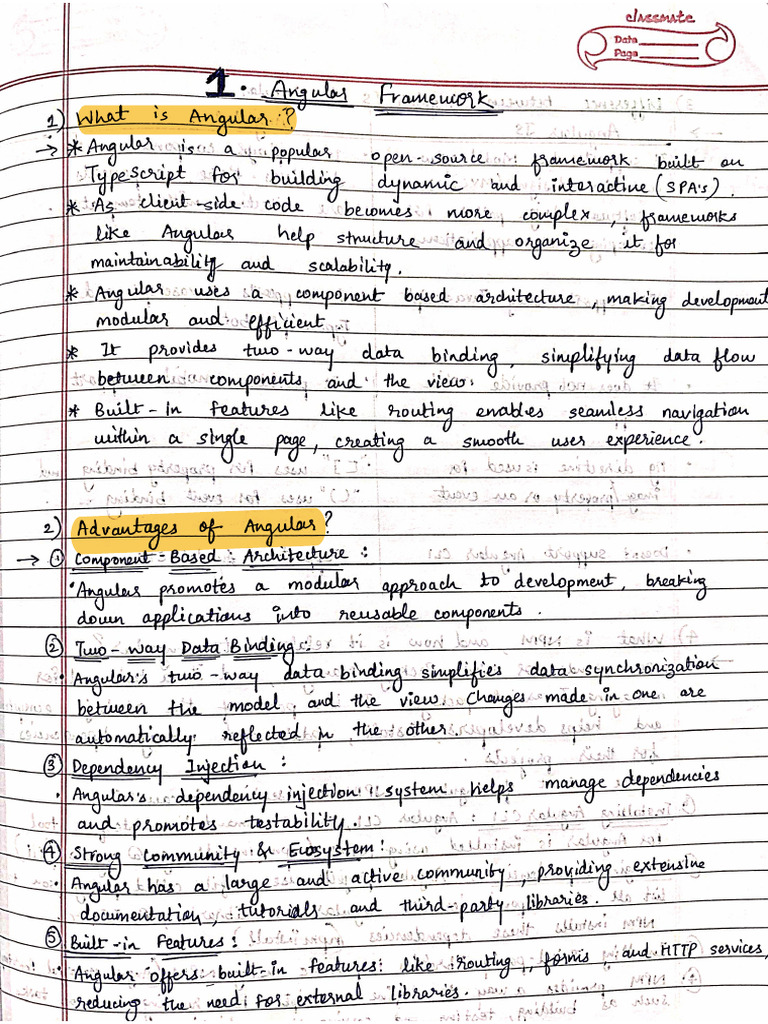 classmate
Date
Page
1. Angular Framework
1) What is Angular?
→ * Angular is a popular open-source framework built on
TypeScript for building dynamic and interactive (SPA's).
* As client-side code becomes more complex, frameworks
like Angular help structure and organize it for
maintainability and scalability.
* Angular uses a component based architecture, making development
modular and efficient
* It provides two-way data binding, simplifying data flow
between components and the view.
* Built-in features like routing enables seamless navigation
within a single page, creating a smooth user experience.
2) Advantages of Angular?
→ ① Component-Based Architecture :
• Angular promotes a modular approach to development, breaking
down applications into reusable components.
② Two-way Data Binding
• Angular's two-way data binding simplifies data synchronization
between the model and the view. Changes made in one are
automatically reflected in the other.
③ Dependency Injection :
• Angular's dependency injection system helps manage dependencies
and promotes testability.
④ Strong Community & Ecosystem :
• Angular has a large and active community, providing extensive
documentation, tutorials and third-party libraries.
⑤ Built-in Features :
• Angular offers built-in features like routing, forms and HTTP services,
reducing the need for external libraries.